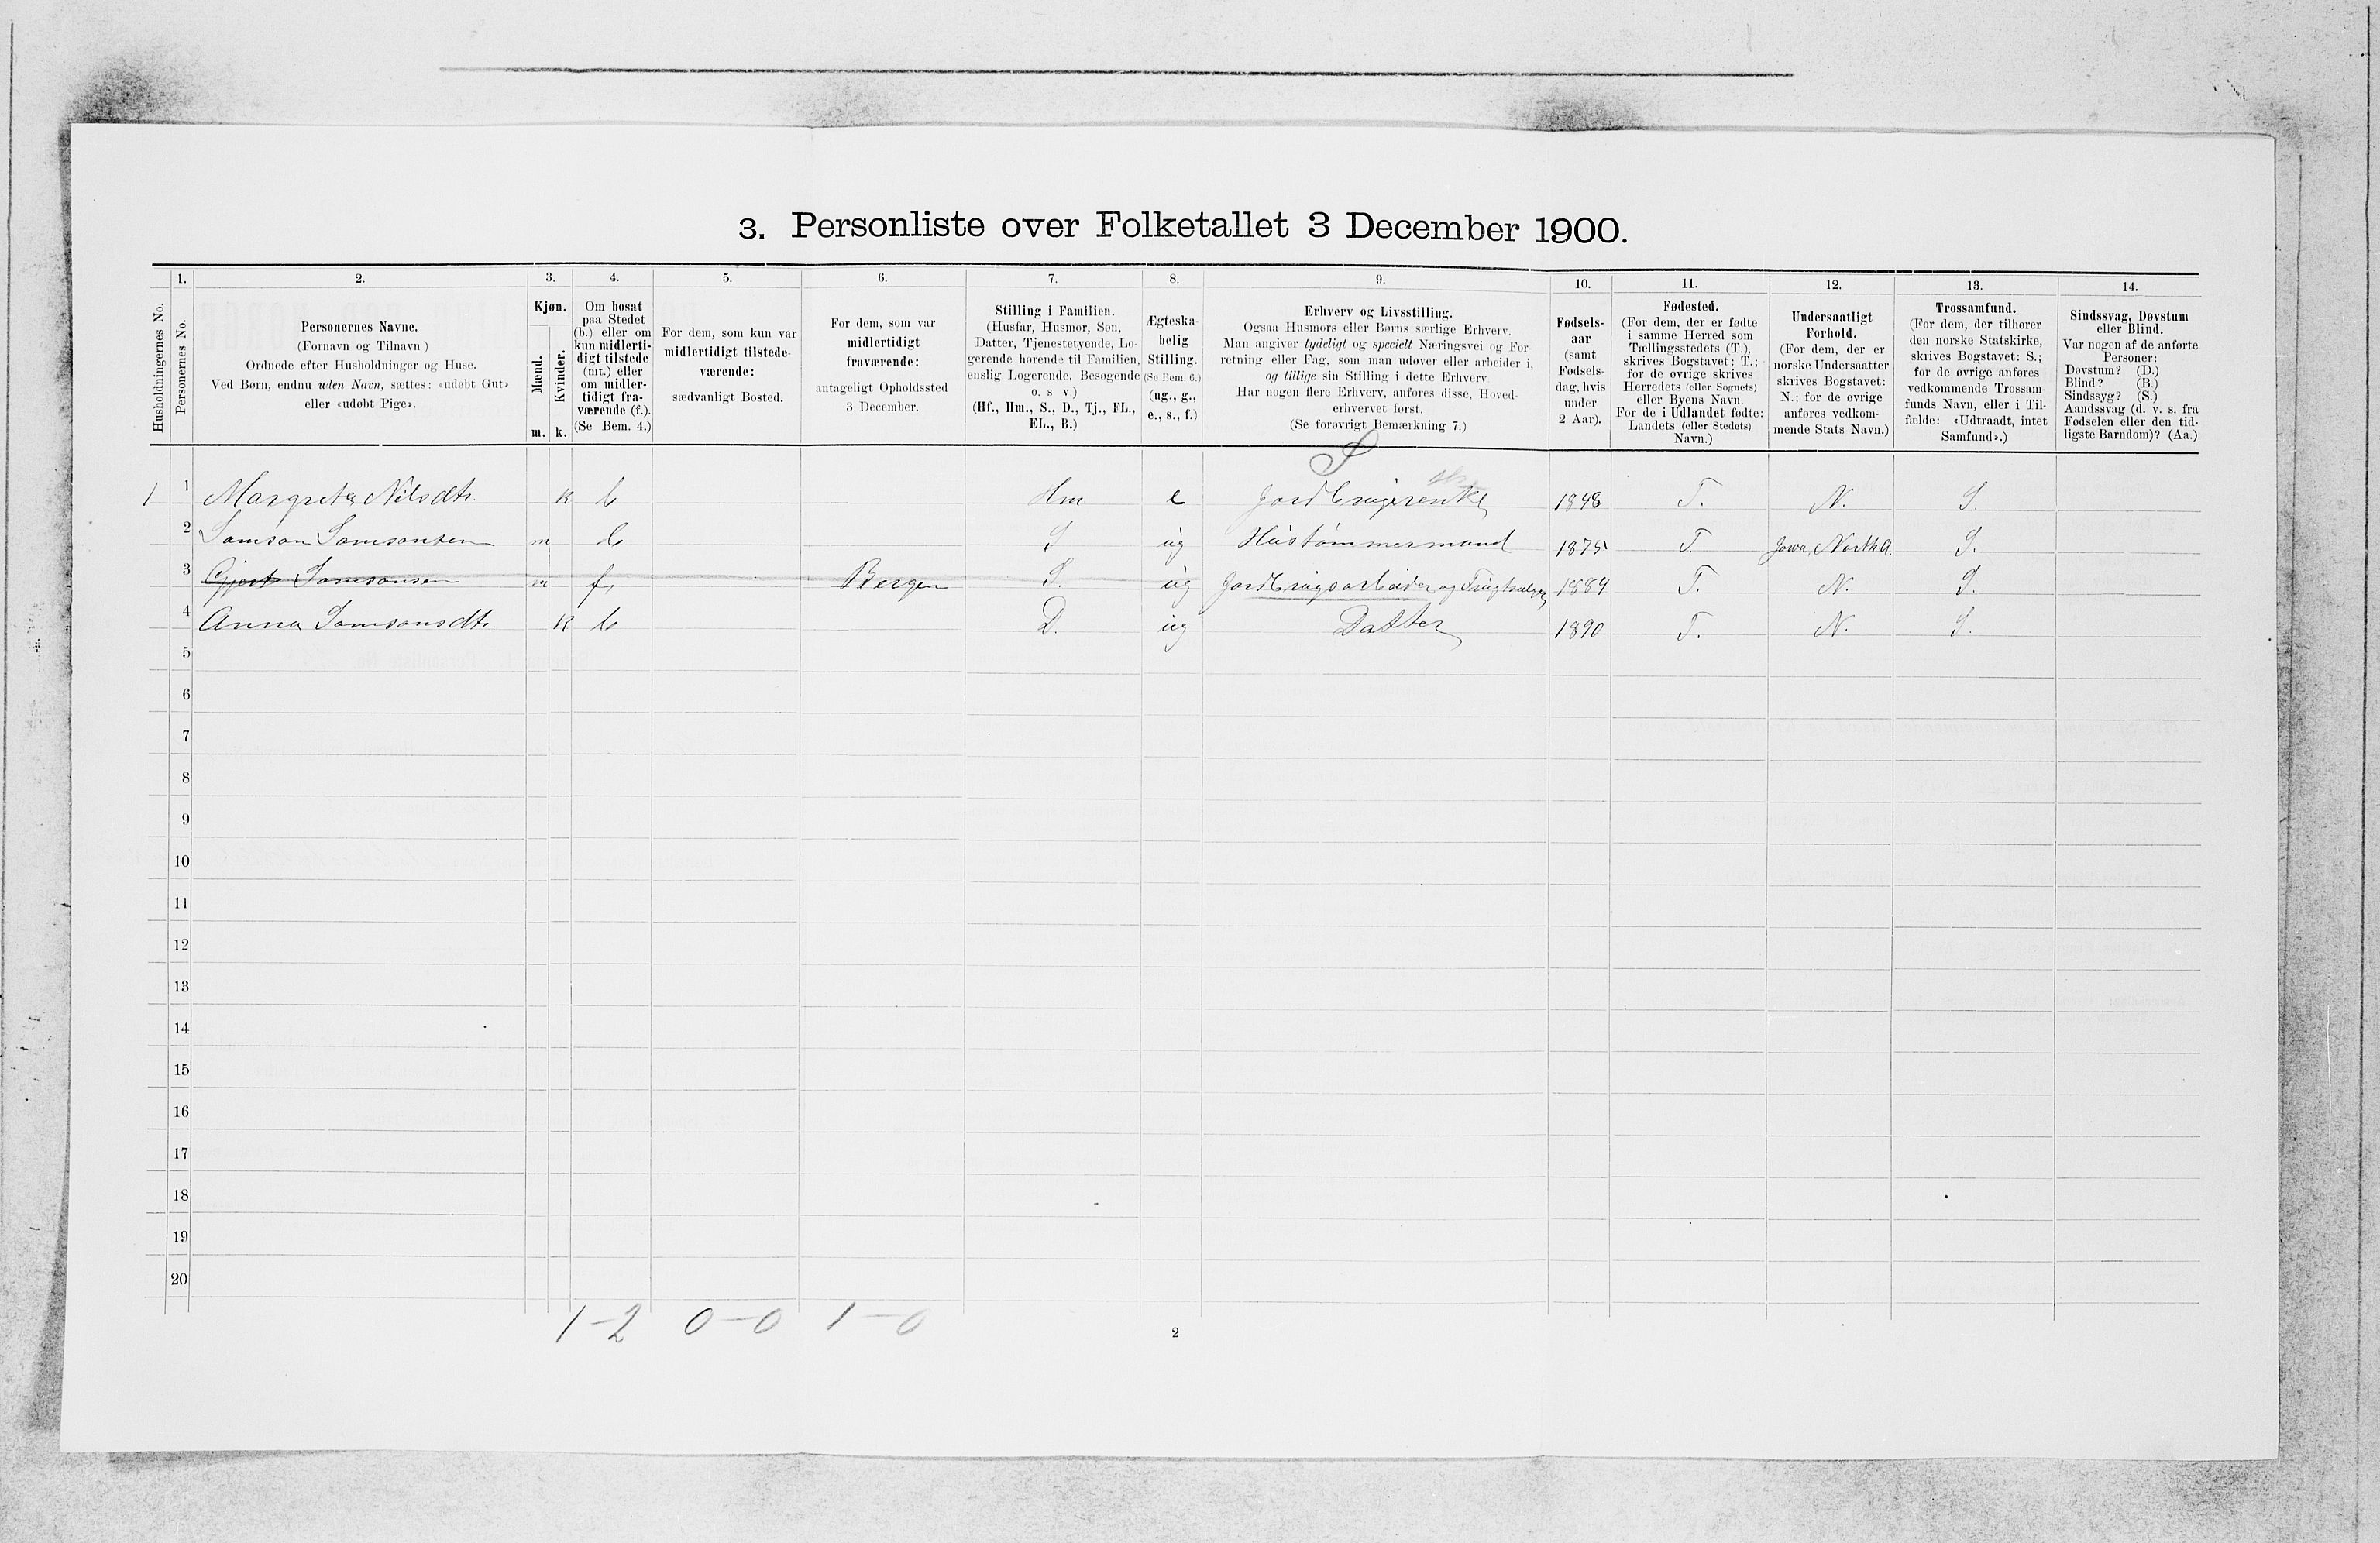 3. Personliste over Folketallet 3 December 1900.
1. 2. 3. 4. 5. 6. 7. 8. 9. 10. 11. 12. 13. 14.
Husholdningernes No.
Personernes No.
Personernes Navne.
(Fornavn og Tilnavn)
Ordnede efter Husholdninger og Huse.
Ved Børn, endnu uden Navn, sættes: «udøbt Gut»
eller «udøbt Pige».
Kjøn.
Mænd.
Kvinder.
m. k.
Om bosat
paa Stedet
(b.) eller om
kun midlerti-
digt tilstede
(mt.) eller
om midler-
tidigt fra-
værende (f.).
(Se Bem. 4.)
For dem, som kun var
midlertidigt tilstede-
værende:
sædvanligt Bosted.
For dem, som var
midlertidigt
fraværende:
antageligt Opholdssted
3 December.
Stilling i Familien.
(Husfar, Husmor, Søn,
Datter, Tjenestetyende, Lo-
gerende hørende til Familien,
enslig Logerende, Besøgende
o. s v.)
(Hf., Hm., S., D., Tj., FL.,
EL., B.)
Ægteska-
belig
Stilling.
(Se Bem. 6.)
(ug., g.,
e., s., f.)
Erhverv og Livsstilling.
Ogsaa Husmors eller Børns særlige Erhverv.
Man angiver tydeligt og specielt Næringsvei og For-
retning eller Fag, som man udøver eller arbeider i,
og tillige sin Stilling i dette Erhverv.
Har nogen flere Erhverv, anføres disse, Hoved-
erhvervet først.
(Se forøvrigt Bemærkning 7.)
Fødsels-
aar
(samt
Fødsels-
dag, hvis
under
2 Aar).
Fødested.
(For dem, der er fødte
i samme Herred som
Tællingsstedets (T.),
skrives Bogstavet: T.;
for de øvrige skrives
Herredets (eller Sognets)
eller Byens Navn.
For de i Udlandet fødte:
Landets (eller Stedets)
Navn.)
Undersaatligt
Forhold.
(For dem, der er
norske Undersaatter
skrives Bogstavet:
N.; for de øvrige
anføres vedkom-
mende Stats Navn.)
Trossamfund.
(For dem, der tilhører
den norske Statskirke,
skrives Bogstavet: S.;
for de øvrige anføres
vedkommende Trossam-
funds Navn, eller i Til-
fælde: «Udtraadt, intet
Samfund».)
Sindssvag, Døvstum
eller Blind.
Var nogen af de anførte
Personer:
Døvstum? (D.)
Blind? (B.)
Sindssyg? (S.)
Aandssvag (d. v. s. fra
Fødselen eller den tid-
ligste Barndom)? (Aa.)
1 1 Margreta Nilsdtr. k b Hm e Jordbrugerenke 1848 T. N. S.
2 Samson Samsonsen m b S ug Hustømmermand 1875 T. Jowa, North A. S.
3 Gjert Samsonsen m f Bergen S. ug Jordbrugsarbeider og Frugtsælger 1884 T. N. S.
4 Anna Samsonsdtr. k b D. ug Datter 1890 T. N. S.
5
6
7
8
9
10
11
12
13
14
15
16
17
18
19
20
1-2 0-0 1-0
2